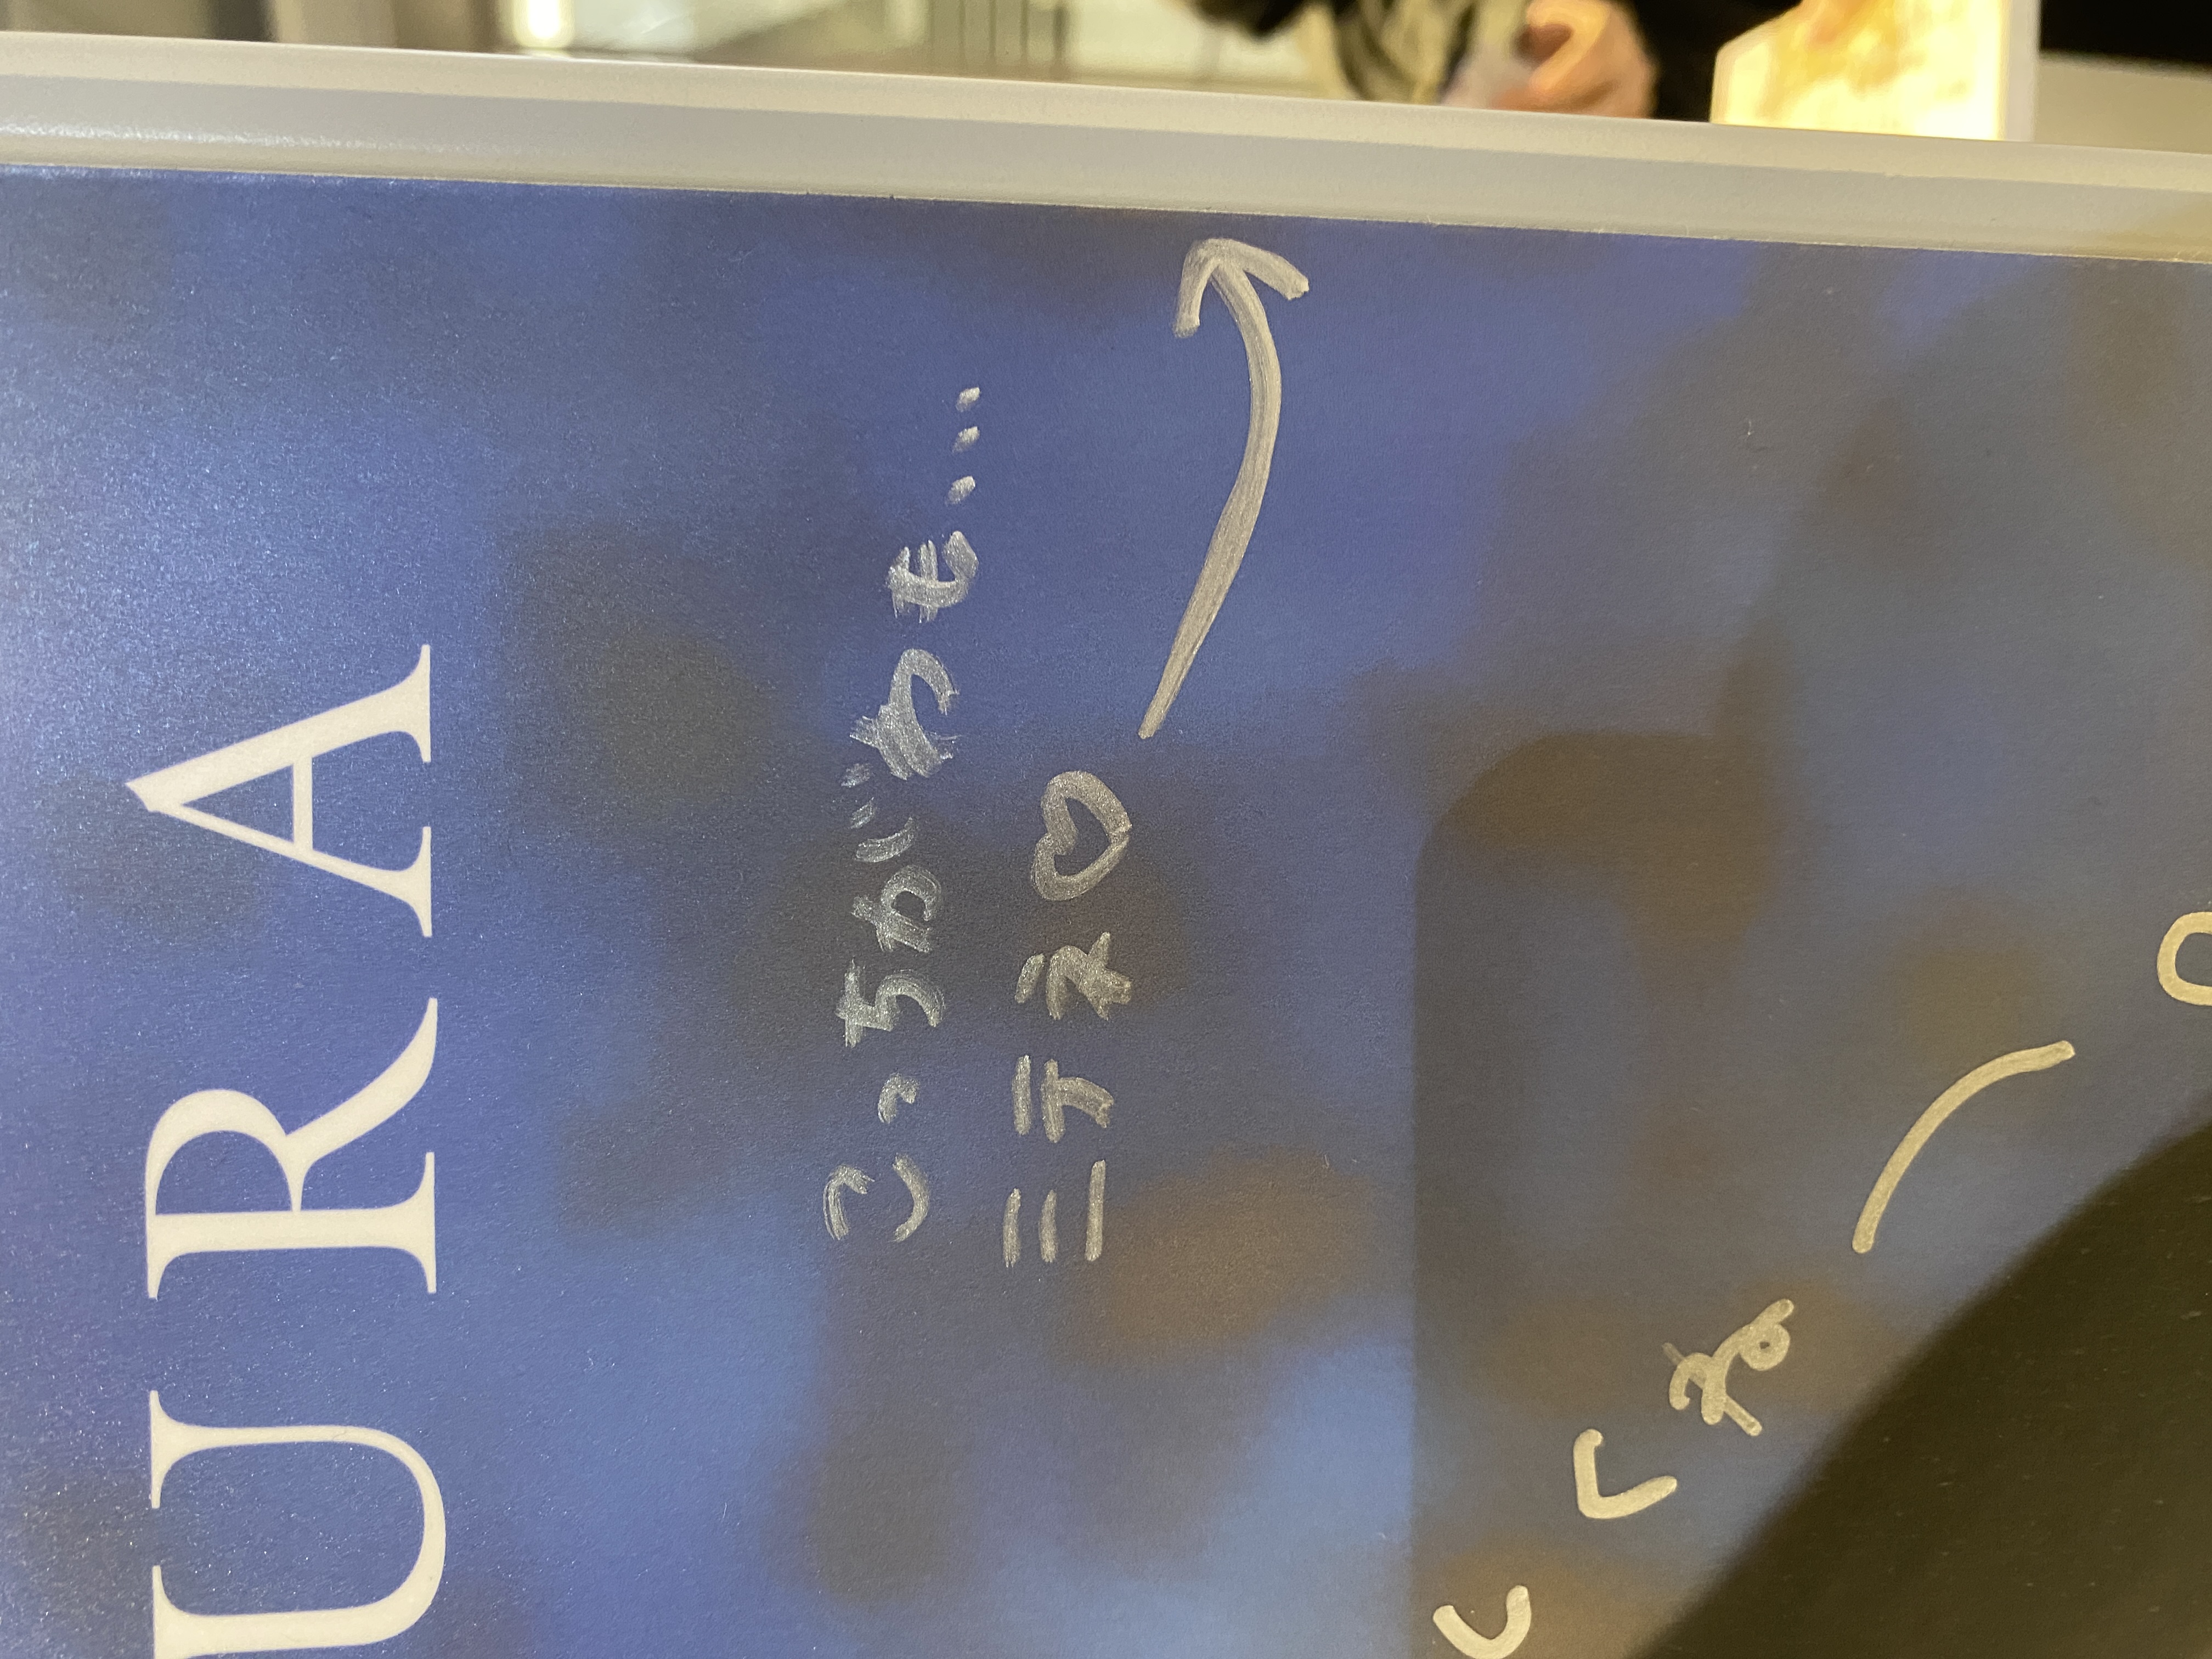 URA
こっちがわも...
ミテネ♡
くね